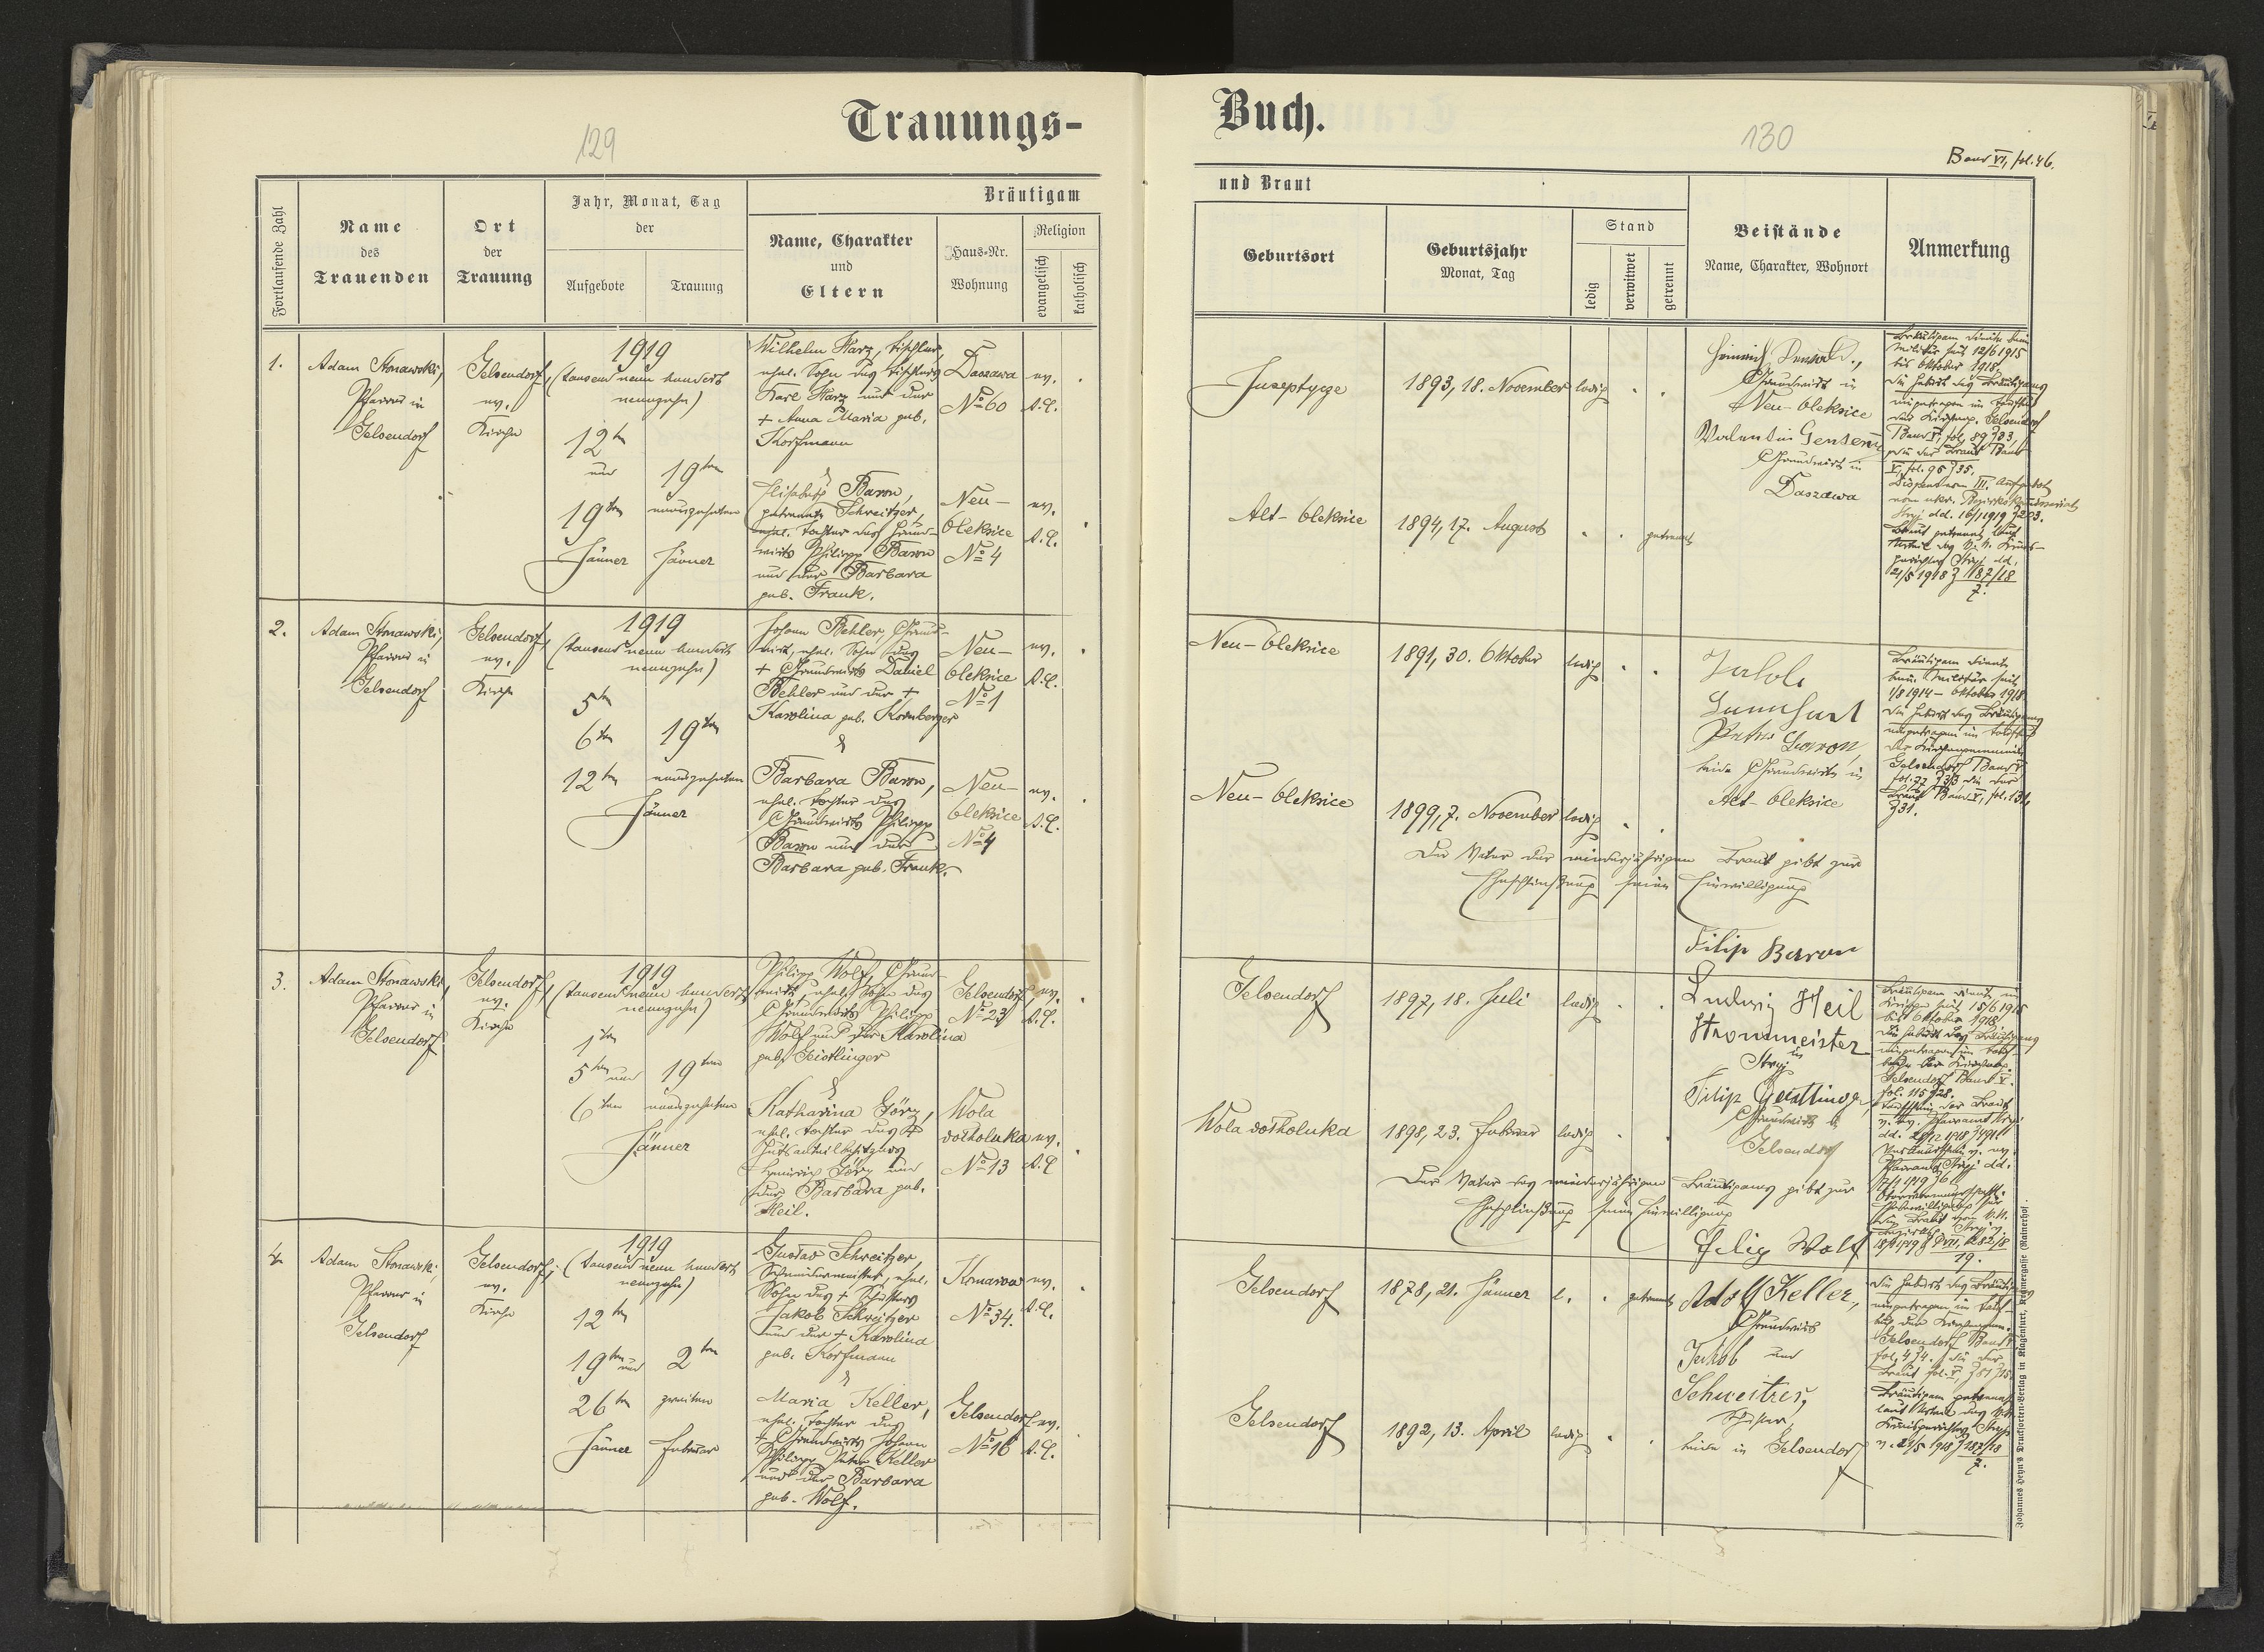 Trauungs-
129
Fortlaufende Zahl
Name
des
Trauenden
Ort
der
Trauung
Jahr, Monat, Tag
der
Aufgebote
Trauung
Bräutigam
Name, Charakter
und
Eltern
Haus-Nr.
Wohnung
Religion
evangelisch
katholisch
1.
Adam Stonawski,
Pfarrer in
Gelsendorf
Gelsendorf,
ev.
Kirche
1919
(tausend neun hundert
neunzehn)
12ten
und
19ten
Jänner
19ten
neunzehnten
Jänner
Wilhelm Harz, Tischler,
ehel. Sohn des Tischlers
Karl Harz und der
+ Anna Maria geb.
Korfmann
&
Elisabeth Baron,
getrennte Schweitzer,
ehel. Tochter des Grund-
wirts Philipp Baron
und der Barbara
geb. Frank.
Daszawa
No 60
ev.
A.C.
Neu-
Oleksice
No 4
ev.
A.C.
2.
Adam Stonawski,
Pfarrer in
Gelsendorf
Gelsendorf,
ev.
Kirche
1919
(tausend neun hundert
neunzehn)
5ten
6ten
12ten
19ten
neunzehnten
Jänner
Johann Behler, Grund-
wirt, ehel. Sohn des
+ Grundwirts Daniel
Behler und der +
Karolina geb. Kornberger
&
Barbara Baron,
ehel. Tochter des
Grundwirts Philipp
Baron und der
Barbara geb. Frank.
Neu-
Oleksice
No 1
ev.
A.C.
Neu-
Oleksice
No 4
ev.
A.C.
3.
Adam Stonawski,
Pfarrer in
Gelsendorf
Gelsendorf,
ev.
Kirche
1919
(tausend neun hundert
neunzehn)
1ten
5ten und
6ten
19ten
neunzehnten
Jänner
Philipp Wolf, Grund-
wirt, ehel. Sohn des
Grundwirts Philipp
Wolf und der Karolina
geb.
&
Katharina Görz,
ehel. Tochter des
Gutsanteilbesitzers
Heinrich Görz und
der Barbara geb.
Heil.
Gelsendorf
No 23
ev.
A.C.
Wola
dołholuka
No 13
ev.
A.C.
4.
Adam Stonawski,
Pfarrer in
Gelsendorf
Gelsendorf,
ev.
Kirche
1919
(tausend neun hundert
neunzehn)
12ten
19ten und
26ten
Jänner
2ten
zweiten
Februar
Gustav Schweitzer,
Schneidermeister, ehel.
Sohn des + Schusters
Jakob Schweitzer
und der + Karolina
geb. Korfmann
&
Maria Keller,
ehel. Tochter des
+ Grundwirts Johann
Philipp Peter Keller
und der Barbara
geb. Wolf.
Komarow
No 34.
ev.
A.C.
Gelsendorf
No 16
ev.
A.C.
Buch.
130
Band VI, fol. 46.
und Braut
Geburtsort
Geburtsjahr
Monat, Tag
Stand
ledig
verwitwet
getrennt
Beistände
Name, Charakter, Wohnort
Anmerkung
Juseptycze
1893, 18. November
ledig
Heinrich
Grundwirt in
Neu-Oleksice
Valentin
Grundwirt in
Daszawa
Alt-Oleksice
1894, 17. August
getrennt
Bräutigam diente beim
Militär seit 12/6 1915
bis Oktober 1918.
Die Geburt des Bräutigams
eingetragen im Taufbuch
der Kirchengem. Gelsendorf
Band V, fol. 89 Z 33,
die der Braut Band
V, fol. 95 Z 35.
Dispens vom III. Aufgebot
Stryj dd. 16/1 1919 Z 203.
Braut getrennt laut
Urteil des k. k. Kreis-
gerichtes Stryj dd.
21/5 1918 Z 187/18
7.
Neu-Oleksice
1891, 30. Oktober
ledig
Jakob
Petrus Baron,
beide Grundwirte in
Alt-Oleksice
Neu-Oleksice
1899, 7. November
ledig
Der Vater der minderjährigen Braut gibt zur
Eheschließung seine Einwilligung
Filip Baron
Bräutigam diente
beim Militär seit
1/8 1914 - Oktober 1918
Die Geburt des Bräutigams
eingetragen im Taufbuch
der Kirchengemeinde
Gelsendorf Band V
die der
Braut Band V, fol. 131,
Z 31.
Gelsendorf
1897, 18. Juli
ledig
Ludwig Heil
Strommeister
in
Stryj
Filip
Grundwirt in
Gelsendorf
Wola dołholuka
1898, 23. Februar
ledig
Der Vater des minderjährigen Bräutigams gibt zur
Eheschließung seine Einwilligung
Filip Wolf
Bräutigam diente im
Kriege seit 15/6 1915
bis Oktober 1918.
Die Geburt des Bräutigams
eingetragen im Tauf-
buche der Kirchengem.
Gelsendorf Band V.
fol. 115 Z 28.
Taufschein der Braut
v. ev. Pfarramt Stryj
Pfarramts Stryj dd.
19.
Gelsendorf
1878, 21. Jänner
getrennt
Adolf Keller,
Grundwirt
und
Jakob
Schweitzer,
Schuster,
beide in Gelsendorf
Gelsendorf
1892, 13. April
ledig
Die Geburt des Bräutig.
eingetragen im Tauf-
buch der Kirchengem.
Gelsendorf Band V
fol. 4 Z 4. Die der
Bräutigam getrennt
laut Urteil des k. k.
Kreisgerichtes Stryj
v. 21/5 1918 Z 187/18
7.
Johannes Heyn's Drucksorten-Verlag in Klagenfurt, Kramergasse (Rainerhof.